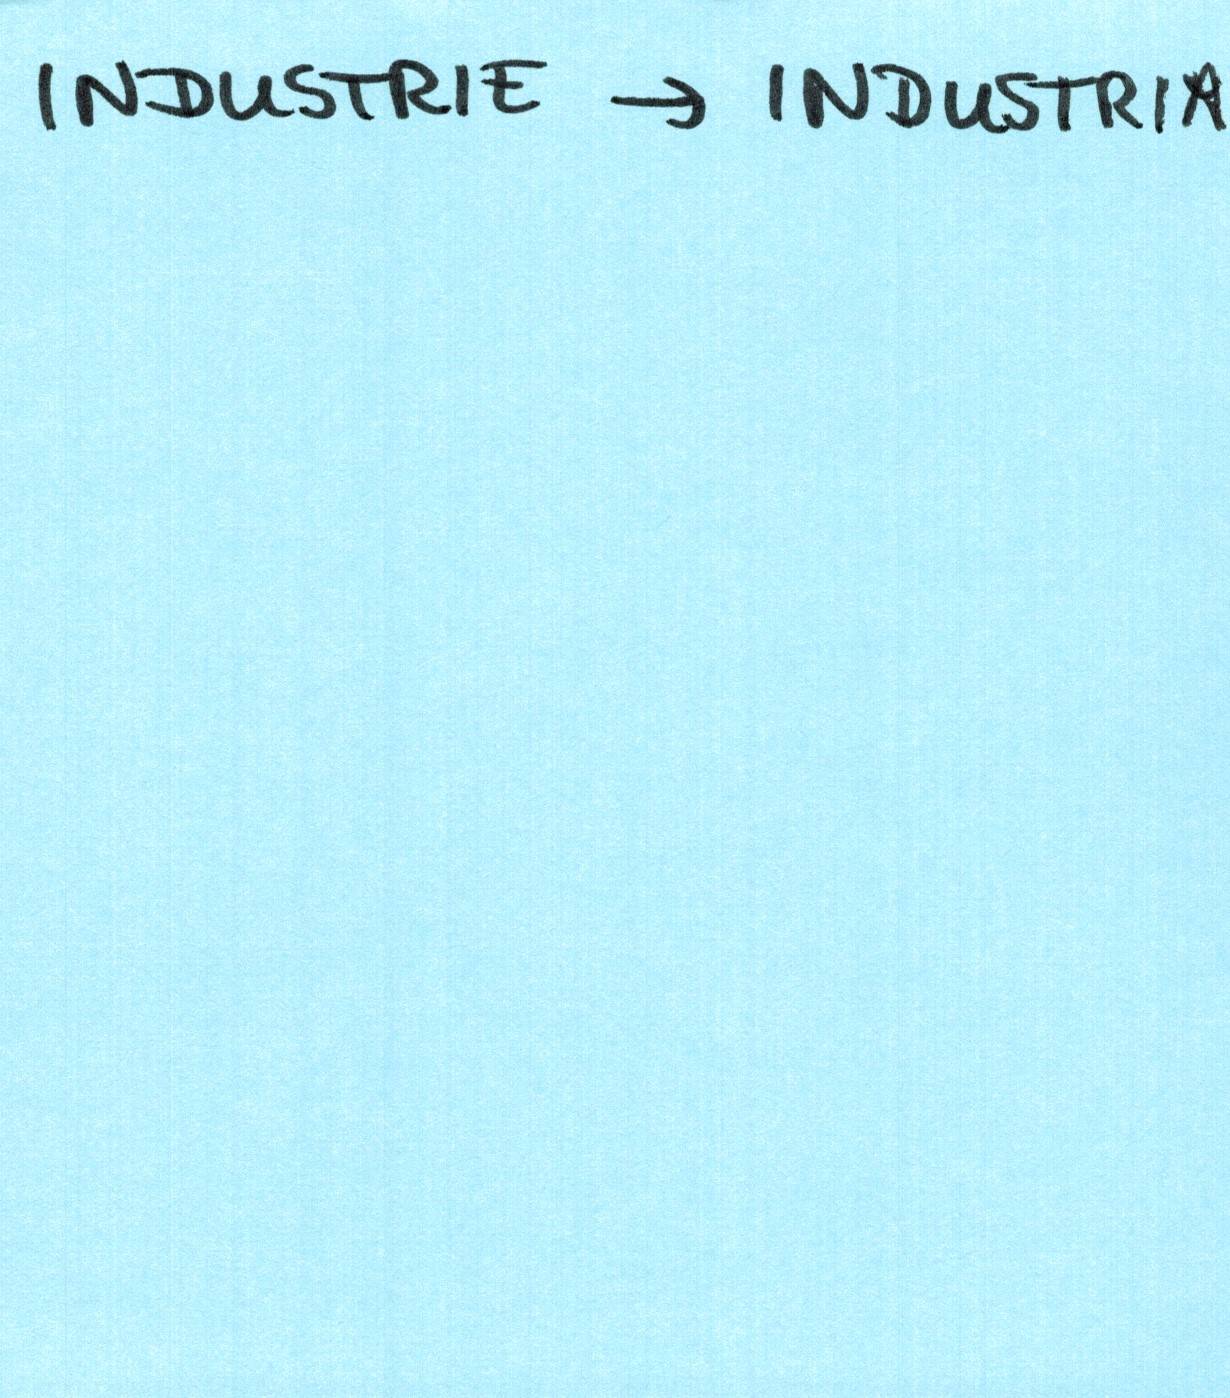 INDUSTRIE → INDUSTRIA